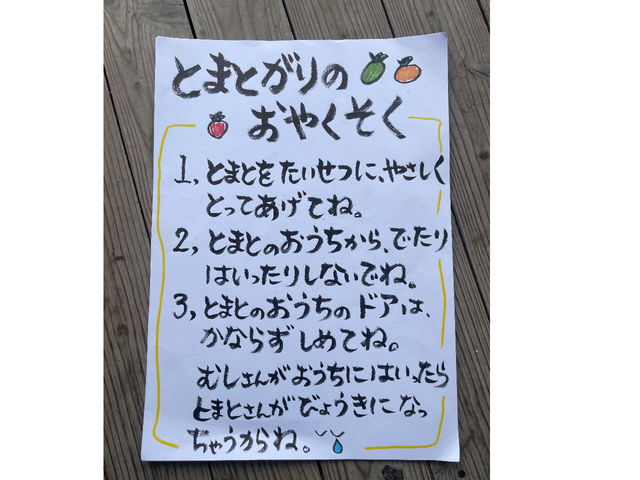 とまとがりの
おやくそく
1, とまとをたいせつに、やさしく
とってあげてね。
2, とまとのおうちから、でたり
はいったりしないでね。
3, とまとのおうちのドアは、
かならずしめてね。
むしさんがおうちにはいったら
とまとさんがびょうきになっ
ちゃうからね。